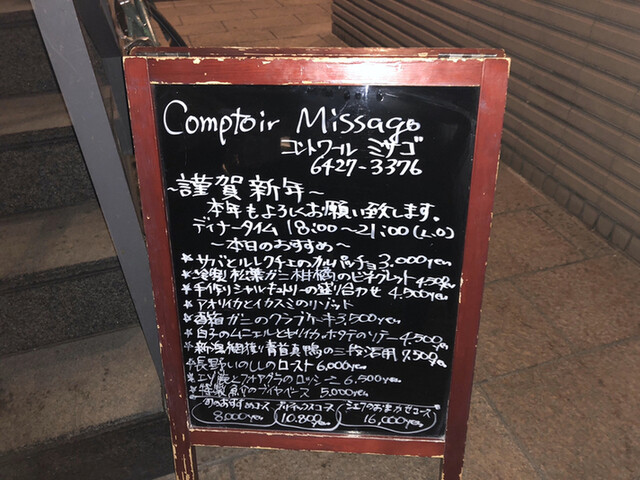 Comptoir Missago
コントワール ミサゴ
6427-3376
〜謹賀新年〜
本年もよろしくお願い致します。
ディナータイム 18:00〜21:00(L.O)
〜本日のおすすめ〜
★サバとルレクチェのカルパッチョ 3,000yen
松葉ガニ柑橘のビネグレット 4,500yen
★手作りシャルキュトリーの盛り合わせ 4,500yen
★アオリイカとイカスミのリゾット
★香箱ガニのクラブケーキ 3,500yen
★白子のムニエルとホタテのソテー 4,500yen
★新潟網獲り青首真鴨の三段活用 9,500yen
★長野いのししのロースト 6,000yen
★エゾ鹿とフォアグラのロッシーニ 6,500yen
★特製魚介のブイヤベース 5,000yen
おすすめコース 8,000yen
コース 10,800yen
シェフのおまかせコース 16,000yen